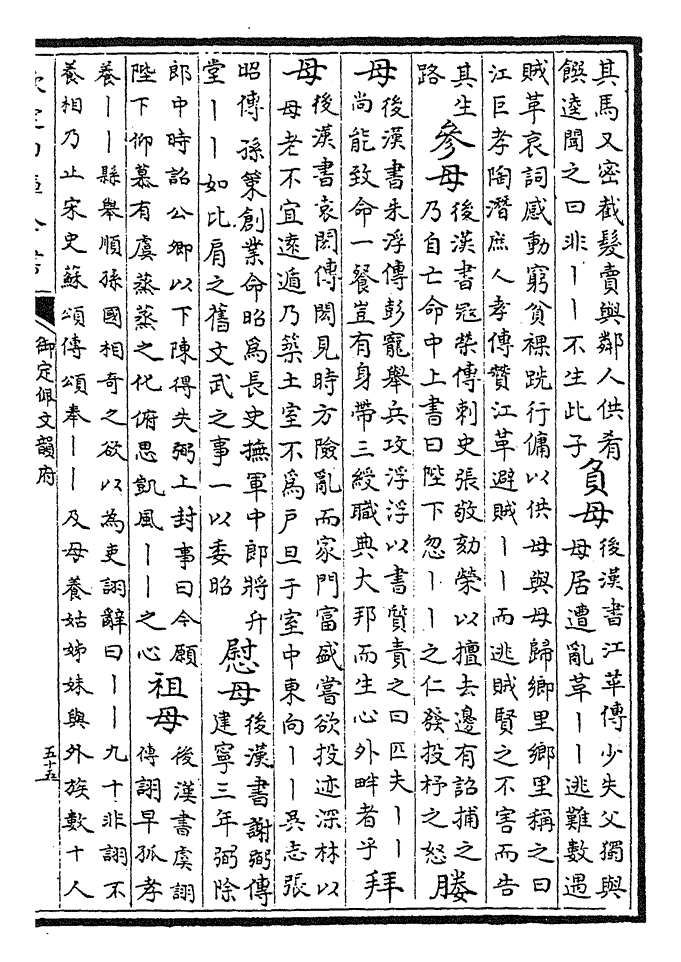 其馬又密截髮賣與鄰人供肴
饌逵聞之曰非丨丨不生此子
負母
後漢書江革傳少失父獨與
母居遭亂革丨丨逃難數遇
賊革哀詞感動窮貧裸跣行傭以供母與母歸鄉里鄉里稱之曰
江巨孝陶潛庶人孝傳贊江革避賊丨丨而逃賊賢之不害而告
其生
路
參母
後漢書冦榮傳刺史張敬劾榮以擅去邊有詔捕之
乃自亡命中上書曰陛下忽丨丨之仁發投杼之怒
媵
母
後漢書朱浮傳彭寵舉兵攻浮浮以書質責之曰匹夫丨丨
尚能致命一餐豈有身帶三綬職典大邦而生心外畔者乎
拜
母
後漢書袁閎傳閎見時方險亂而家門富盛嘗欲投迹深林以
母老不宜逺遁乃築土室不爲戶旦于室中東向丨丨吳志張
昭傳孫策創業命昭爲長史撫軍中郎將升
堂丨丨如比肩之舊文武之事一以委昭
慰母
後漢書謝弼傳
建寧三年弼除
郎中時詔公卿以下陳得失弼上封事曰今願
陛下仰慕有虞蒸蒸之化俯思凱風丨丨之心
祖母
後漢書虞詡
傳詡早孤孝
養丨丨縣舉順孫國相奇之欲以為吏詡辭曰丨丨九十非詡不
養相乃止宋史蘇頌傳頌奉丨丨及母養姑姊妹與外族數十人
欽定四庫全書
御定佩文韻府
五十五